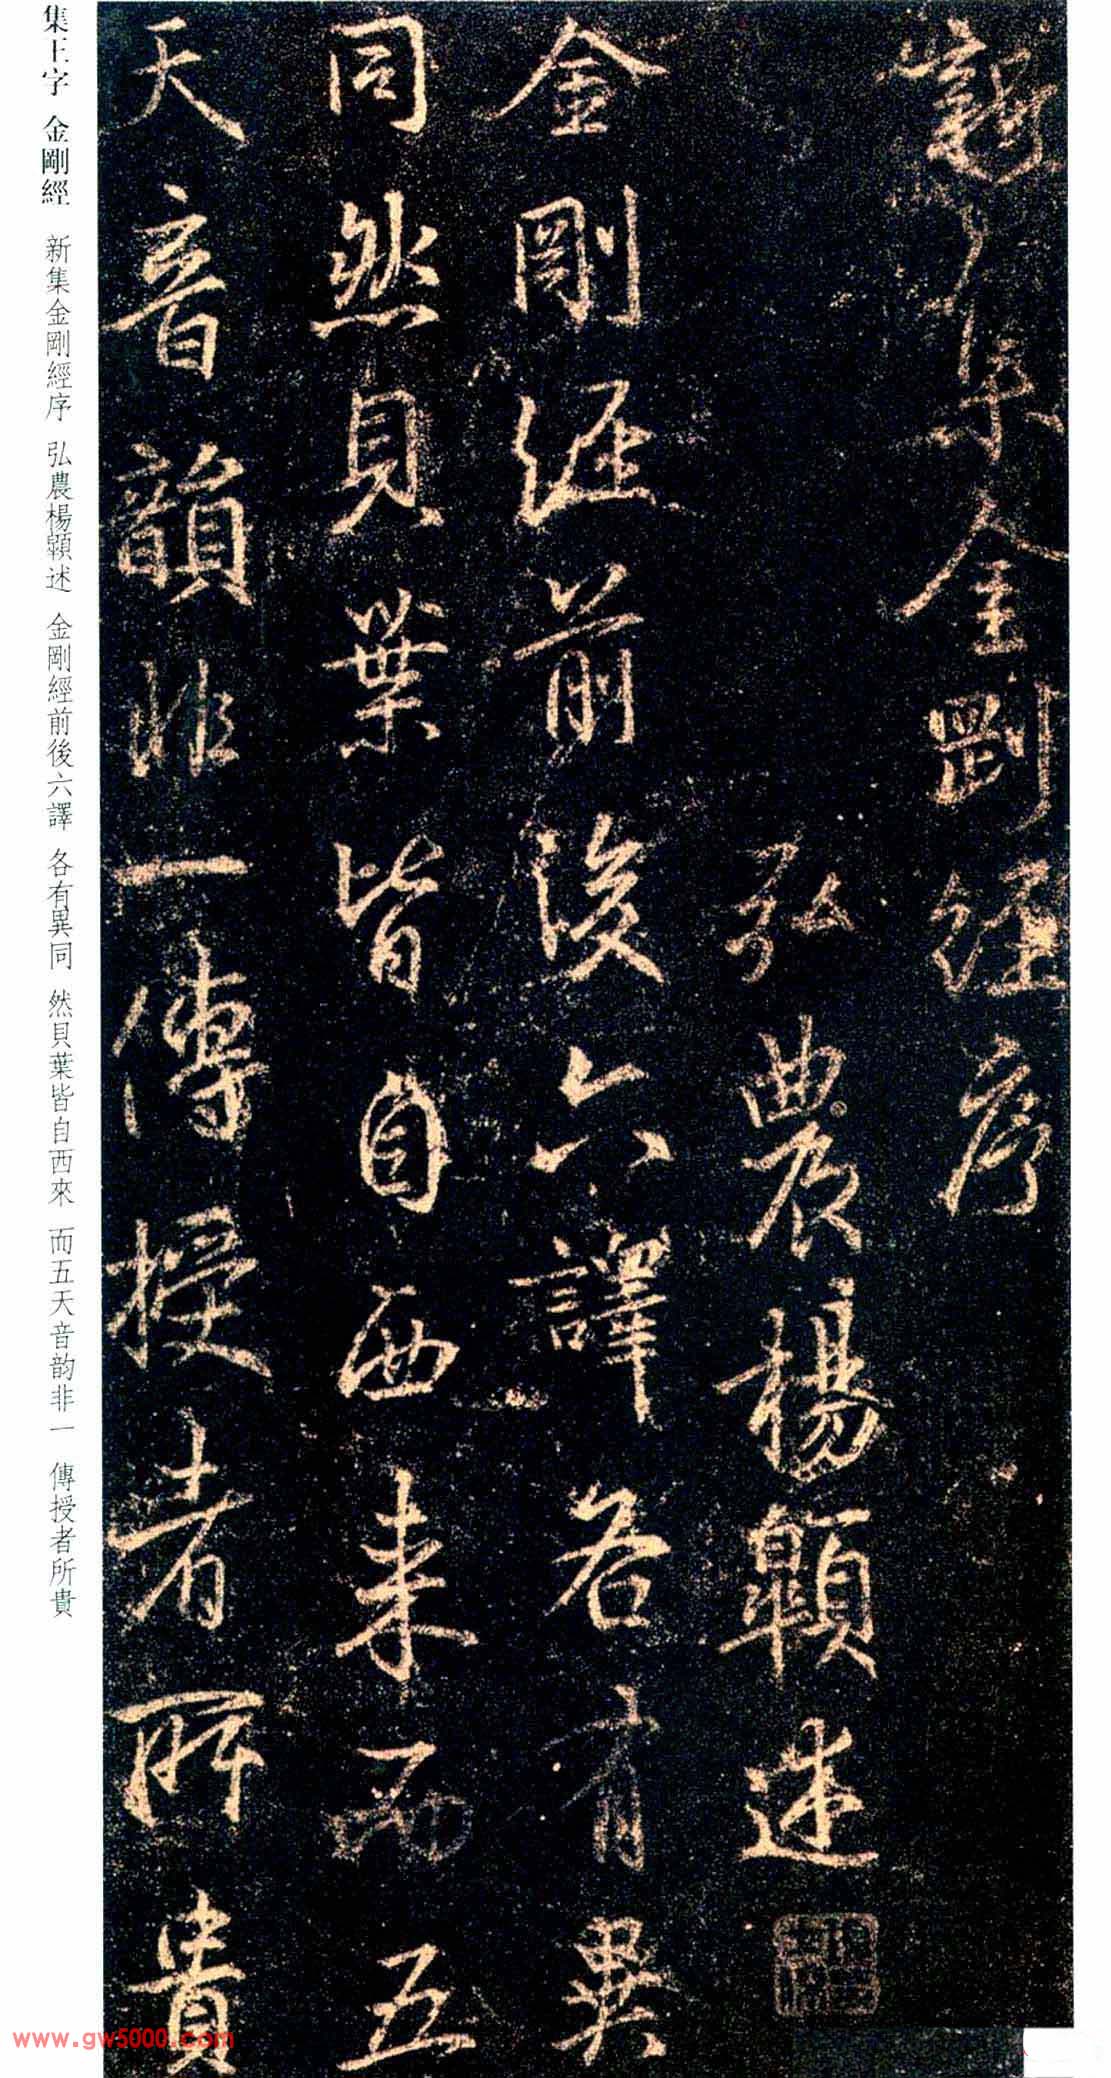 新集金剛經序
弘農楊顗述
金剛經前後六譯各有異
同然貝葉皆自西来而五
天音韻非一傳授者所貴
集王字 金剛經 新集金剛經序 弘農楊顗述 金剛經前後六譯 各有異同 然貝葉皆自西來 而五天音韵非一 傳授者所貴
www.gw5000.com